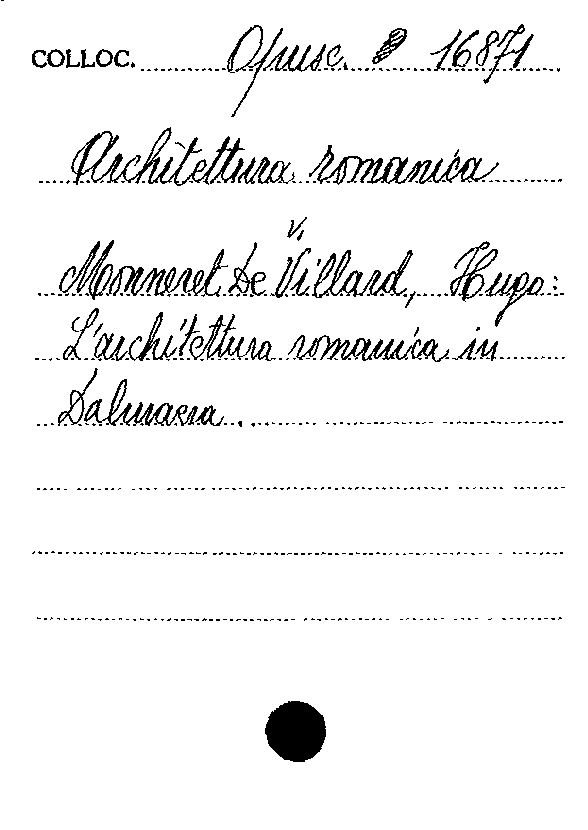 COLLOC. Opusc. 16871
Architettura romanica
v.
Monneret De Villard, Hugo:
L'architettura romanica in
Dalmazia...